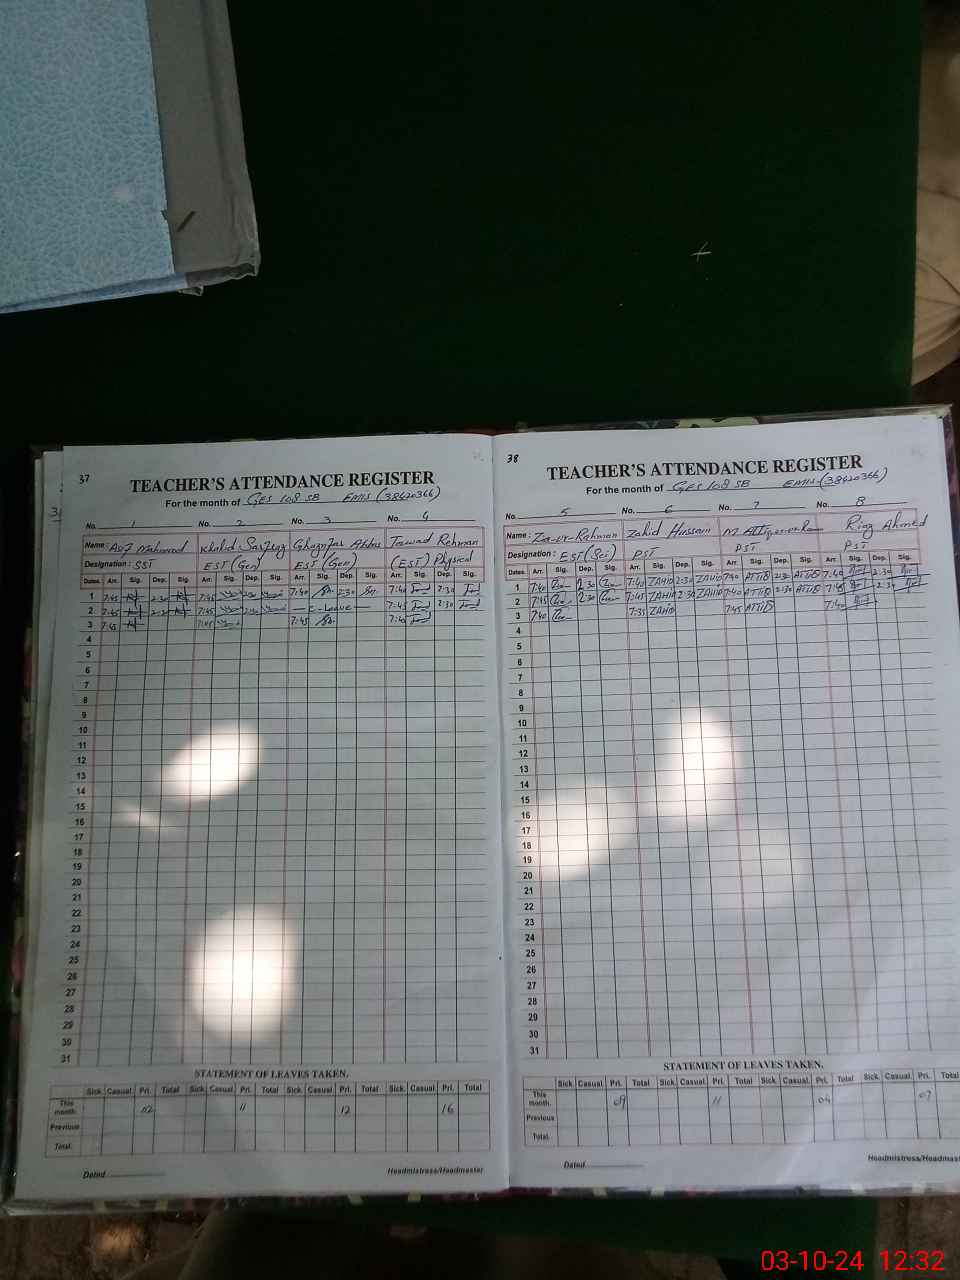 37
TEACHER'S ATTENDANCE REGISTER
For the month of GES 108 SB EMIS (38420366)
No. 1 No. 2 No. 3 No. 4
Name: Mahmood Khalid Sarfraz Ghaznfar Abbas Fawad Rehman
Designation: SST EST (Gen) EST (Gen) (EST) Physical
Dates. Arr. Sig. Dep. Sig. Arr. Sig. Dep. Sig. Arr. Sig. Dep. Sig. Arr. Sig. Dep. Sig.
1 7:45 2:30 7:45 7:40 2:30 7:40 2:30
2 7:45 2:30 7:45 E-Leave 7:45 2:30
3 7:45 7:45 7:45 7:40
4
5
6
7
8
9
10
11
12
13
14
15
16
17
18
19
20
21
22
23
24
25
26
27
28
29
30
31
STATEMENT OF LEAVES TAKEN.
Sick. Casual. Pri. Total Sick. Casual. Pri. Total Sick. Casual. Pri. Total Sick. Casual. Pri. Total
This month. 02 11 12 16
Previous
Total.
Dated Headmistress/Headmaster
38
TEACHER'S ATTENDANCE REGISTER
For the month of GES 108 SB EMIS (38420366)
No. 5 No. 6 No. 7 No. 8
Name: Zia-ur-Rahman Zahid Hussain M Riaz Ahmed
Designation: EST (Sci) PST PST PST
Dates. Arr. Sig. Dep. Sig. Arr. Sig. Dep. Sig. Arr. Sig. Dep. Sig. Arr. Sig. Dep. Sig.
1 7:40 2:30 7:40 ZAHID 2:30 ZAHID 7:40 ATTIQ 2:30 ATTIQ 7:40 2:30
2 7:45 2:30 7:45 ZAHID 2:30 ZAHID 7:40 ATTIQ 2:30 ATTIQ 7:45 2:30
3 7:40 7:35 ZAHID 7:45 ATTIQ 7:40
4
5
6
7
8
9
10
11
12
13
14
15
16
17
18
19
20
21
22
23
24
25
26
27
28
29
30
31
STATEMENT OF LEAVES TAKEN.
Sick. Casual. Pri. Total Sick. Casual. Pri. Total Sick. Casual. Pri. Total Sick. Casual. Pri. Total
This month. 09 11 04 07
Previous
Total.
Dated Headmistress/Headmas
03-10-24 12:32